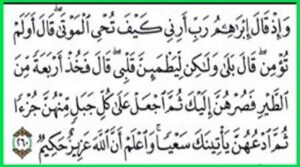 وَإِذْ قَالَ إِبْرَٰهِـۧمُ رَبِّ أَرِنِى كَيْفَ تُحْىِ ٱلْمَوْتَىٰ ۖ قَالَ أَوَلَمْ
تُؤْمِن ۖ قَالَ بَلَىٰ وَلَـٰكِن لِّيَطْمَئِنَّ قَلْبِى ۖ قَالَ فَخُذْ أَرْبَعَةً مِّنَ
ٱلطَّيْرِ فَصُرْهُنَّ إِلَيْكَ ثُمَّ ٱجْعَلْ عَلَىٰ كُلِّ جَبَلٍ مِّنْهُنَّ جُزْءًا
ثُمَّ ٱدْعُهُنَّ يَأْتِينَكَ سَعْيًا ۚ وَٱعْلَمْ أَنَّ ٱللَّهَ عَزِيزٌ حَكِيمٌ ٢٦٠